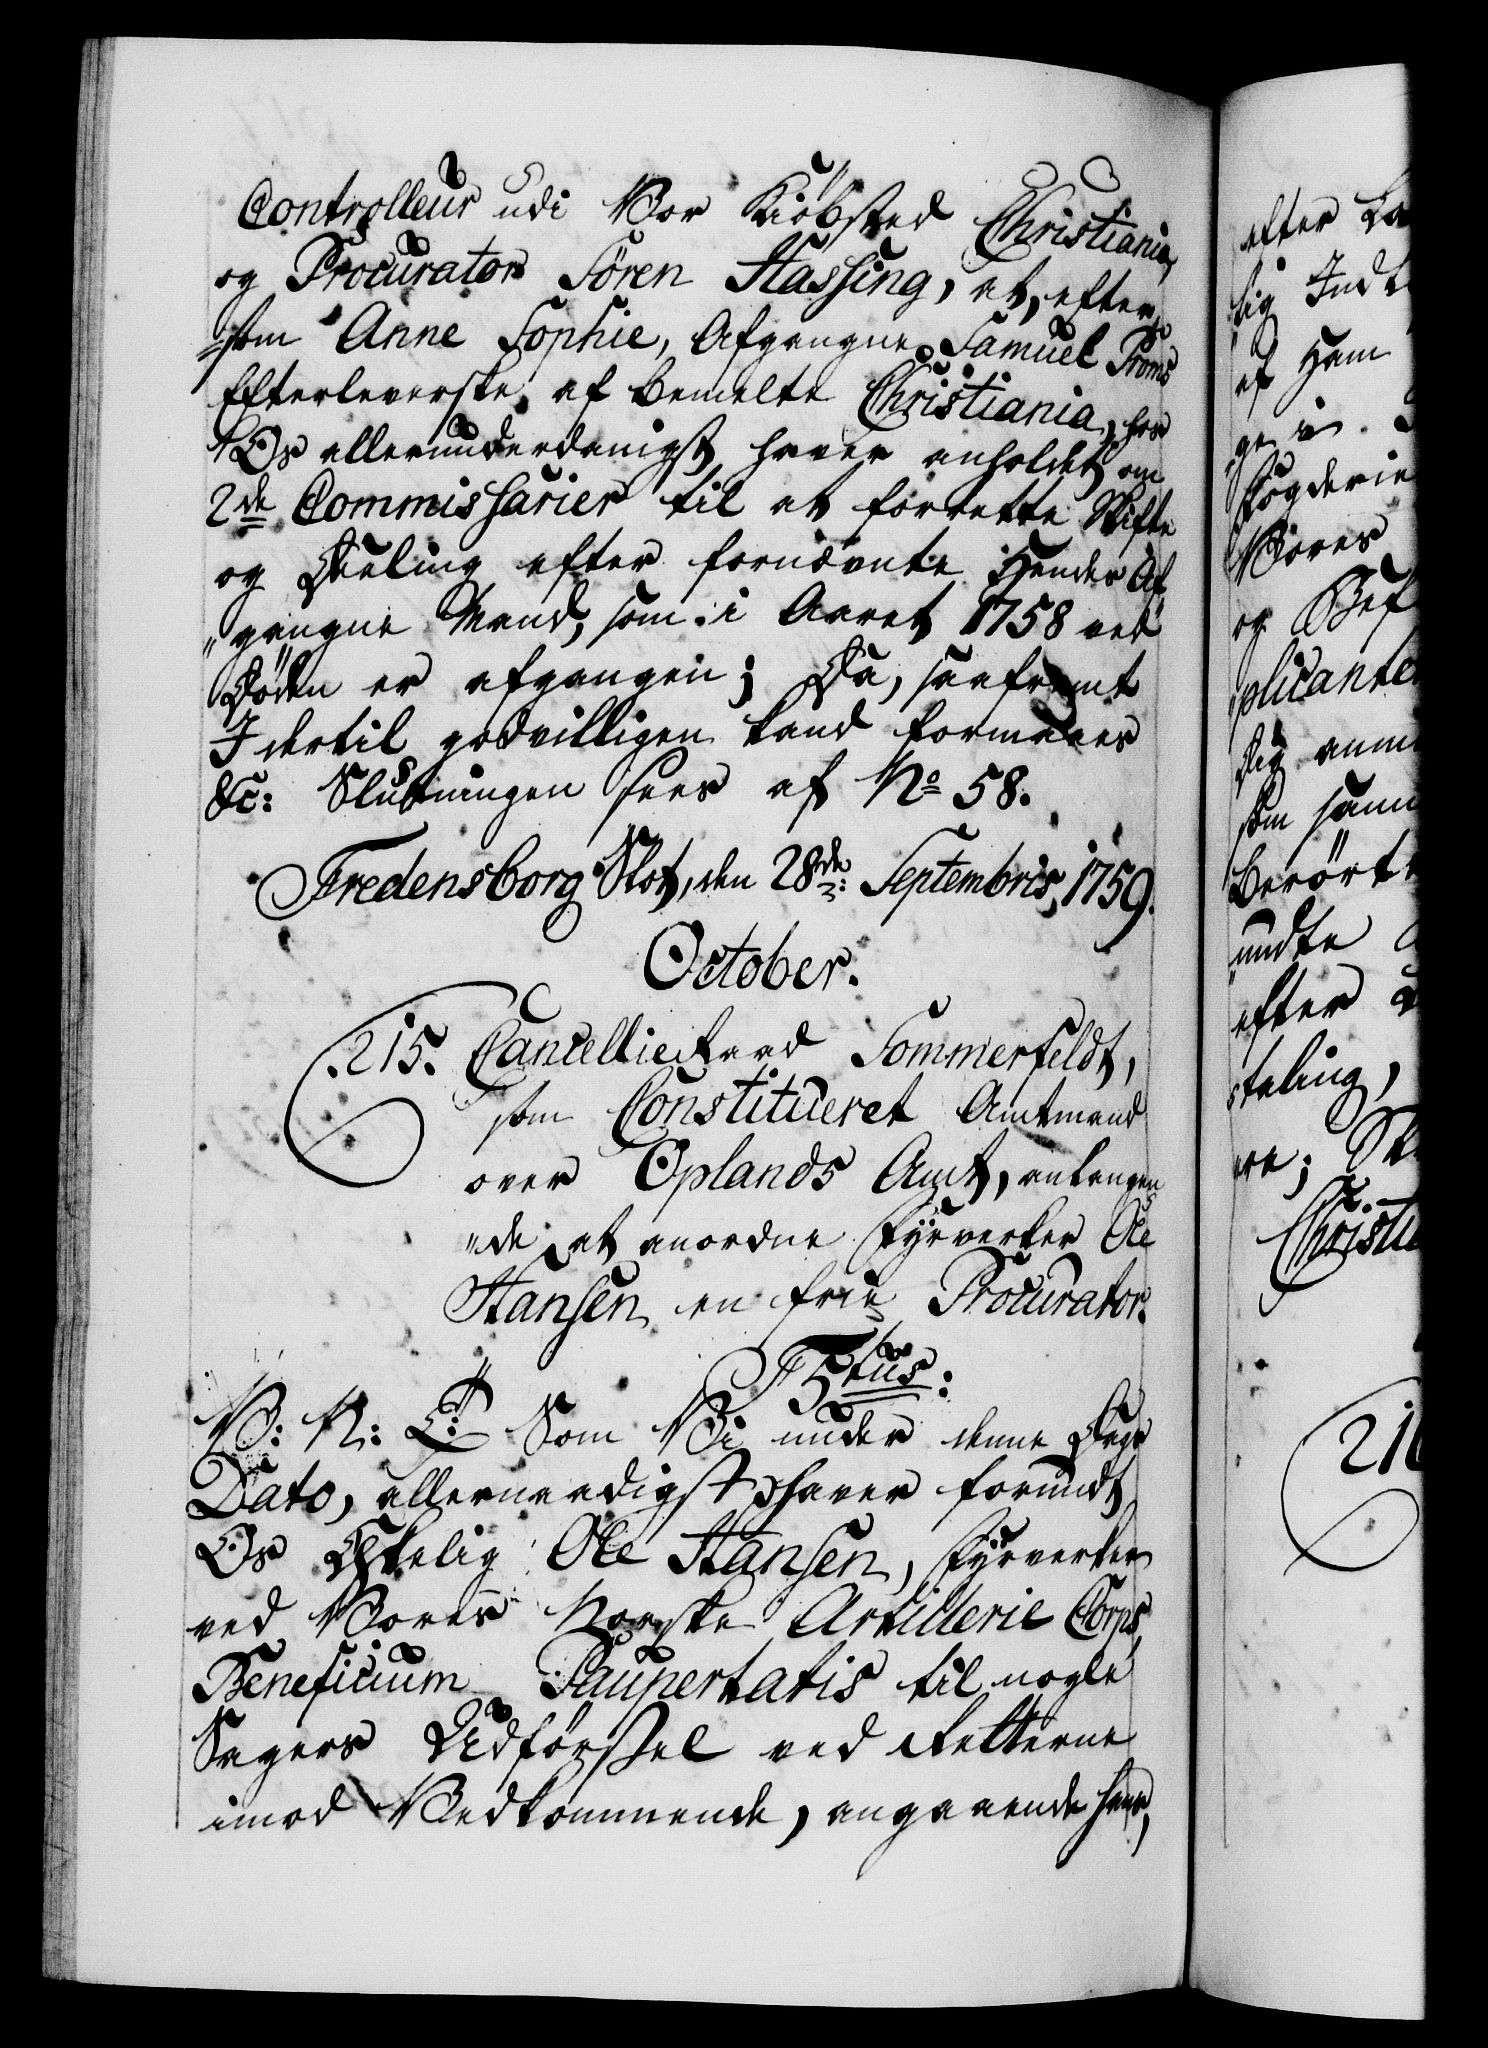 Controlleur udi Vor Kiöbsted Christiania,
og Procurator Sören Hassing, at, efter
=som Anne Sophie, Afgangne Samuel Proms
Efterleverske, af bemelte Christiania, hos
Os allerunderdanigst haver anholdet om
2de Commissarier til at forrette Skifte
og Deeling efter fornævnte Hendes Af
"gangne Mand, som i Aaret 1758 ved
Döden er afgangen; Da, saafremt
I dertil godvilligen kand formaaes
&c: Slutningen sees af No 58.
Fredensborg Slot, den 28de: Septembris, 1759.
October.
215. Cancellieraad Sommerfeldt,
som Constitueret Amtmand
over Oplands Amt, anlangen
"de at anordne Fyrverker Ole
Hansen en frie Procurator.
F5tus:
V: N: G: Som Vi under denne Dags
Dato, allernaadigst haver forundt
Os Elskelig Ole Hansen, Fyrverker
ved Vores Norske Artillerie Corps,
Beneficium Paupertatis til nogle
Sagers Udførsel ved Retterne
imod Vedkommende, angaaende hans,
efter
sig Indt
af Ham
ge
Fogderie
Vores
og Bef
plicante
Dig anm
som
Berört
undte
efter
steling,
ere;
Christi
216